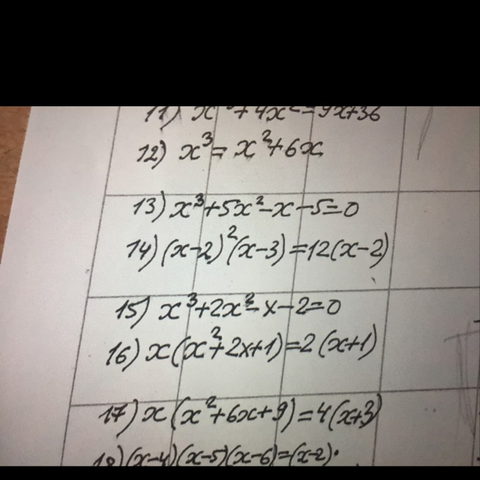 11) x³+4x²=9x+36
12) x³=x²+6x
13) x³+5x²-x-5=0
14) (x-2)²(x-3)=12(x-2)
15) x³+2x²-x-2=0
16) x(x²+2x+1)=2(x+1)
17) x(x²+6x+9)=4(x+3)
18) (x-4)(x-5)(x-6)=(x-2)·